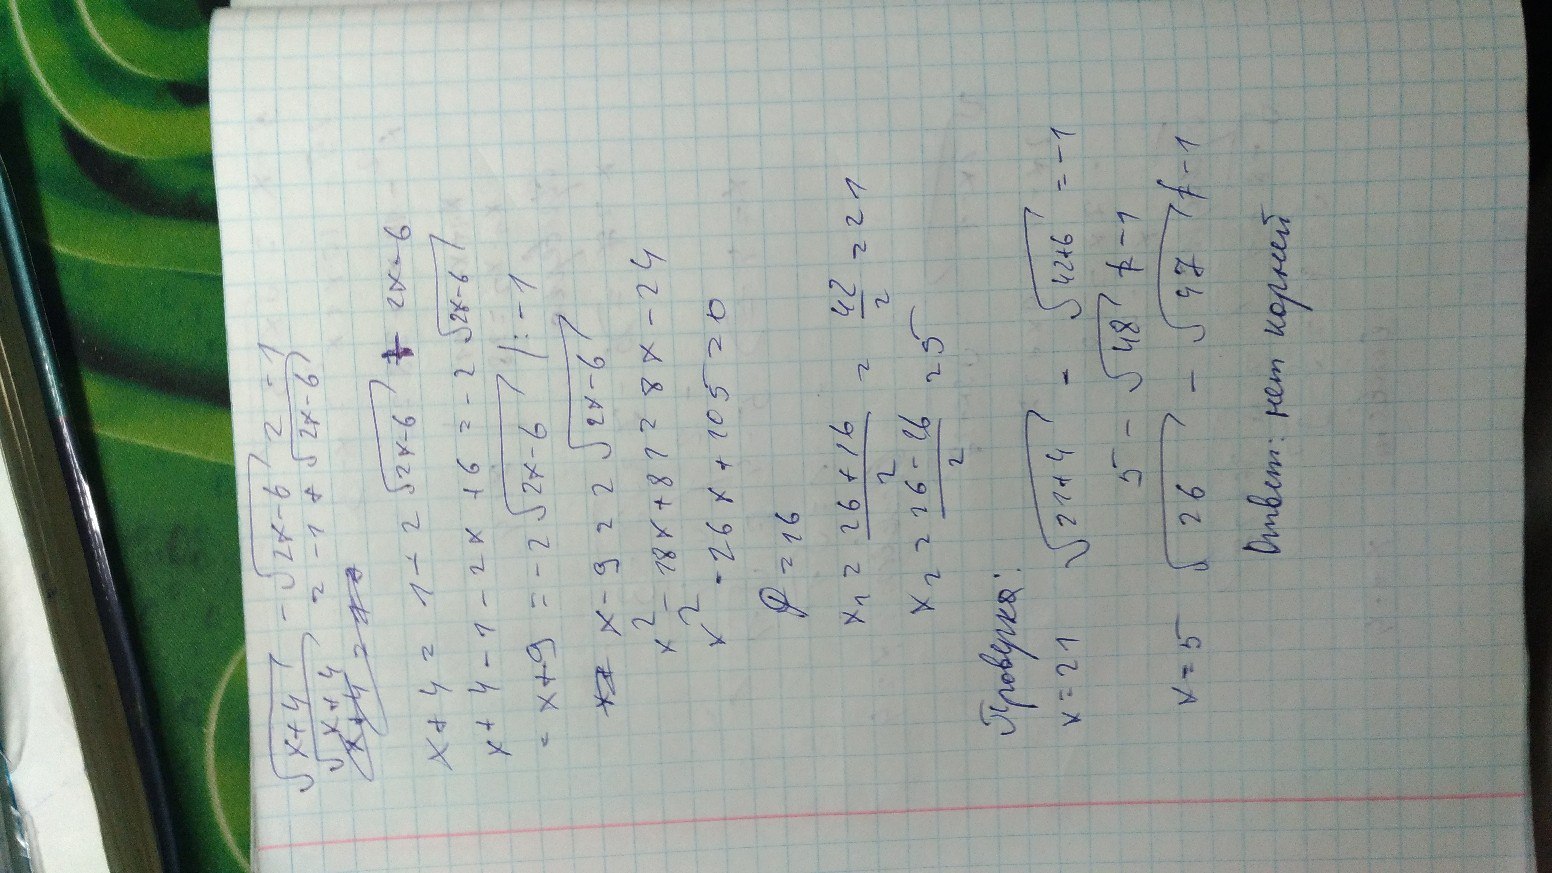 √(x+4) - √(2x-6) = -1
√(x+4) = -1 + √(2x-6)
x+4 = 1 - 2√(2x-6) + 2x-6
x+4-1-2x+6 = -2√(2x-6)
= x+9 = -2√(2x-6) /: -1
x-9 = 2√(2x-6)
x² - 18x + 81 = 8x - 24
x² - 26x + 105 = 0
D = 16
x₁ = (26+16)/2 = 42/2 = 21
x₂ = (26-16)/2 = 5
Проверка:
x=21 √(21+4) - √(42+6) = -1
5 - √48 ≠ -1
x=5 √26 - √47 ≠ -1
Ответ: нет корней